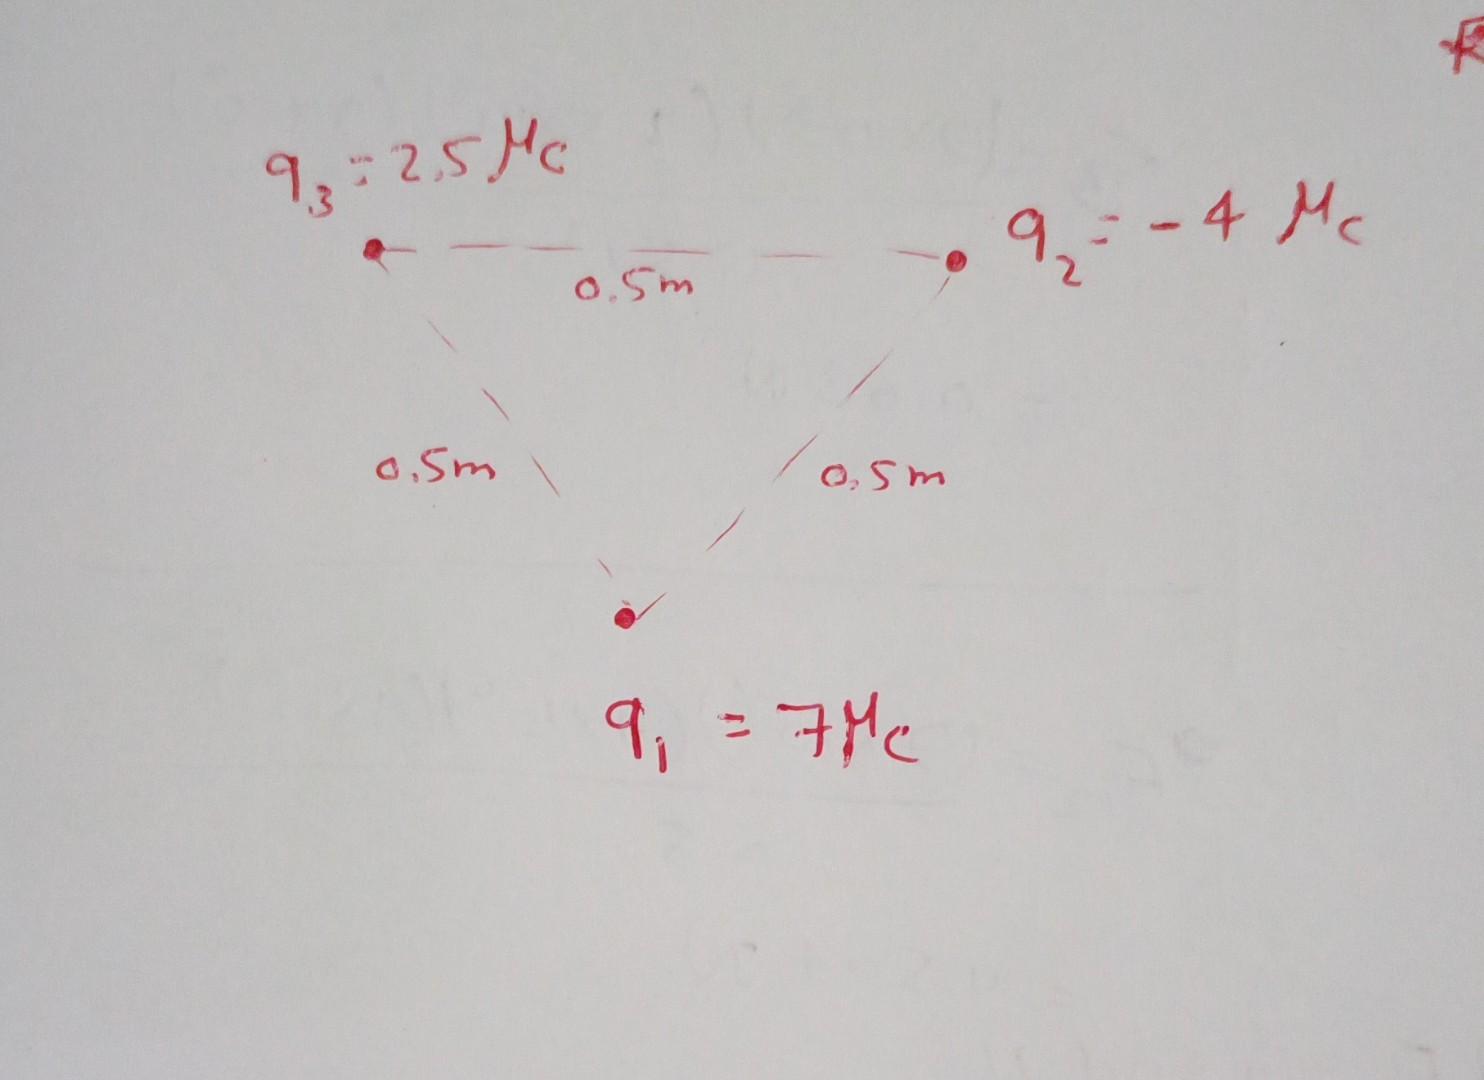 q₃ = 2.5 μc
q₂ = - 4 μc
0.5m
0.5m
0.5m
q₁ = 7μc